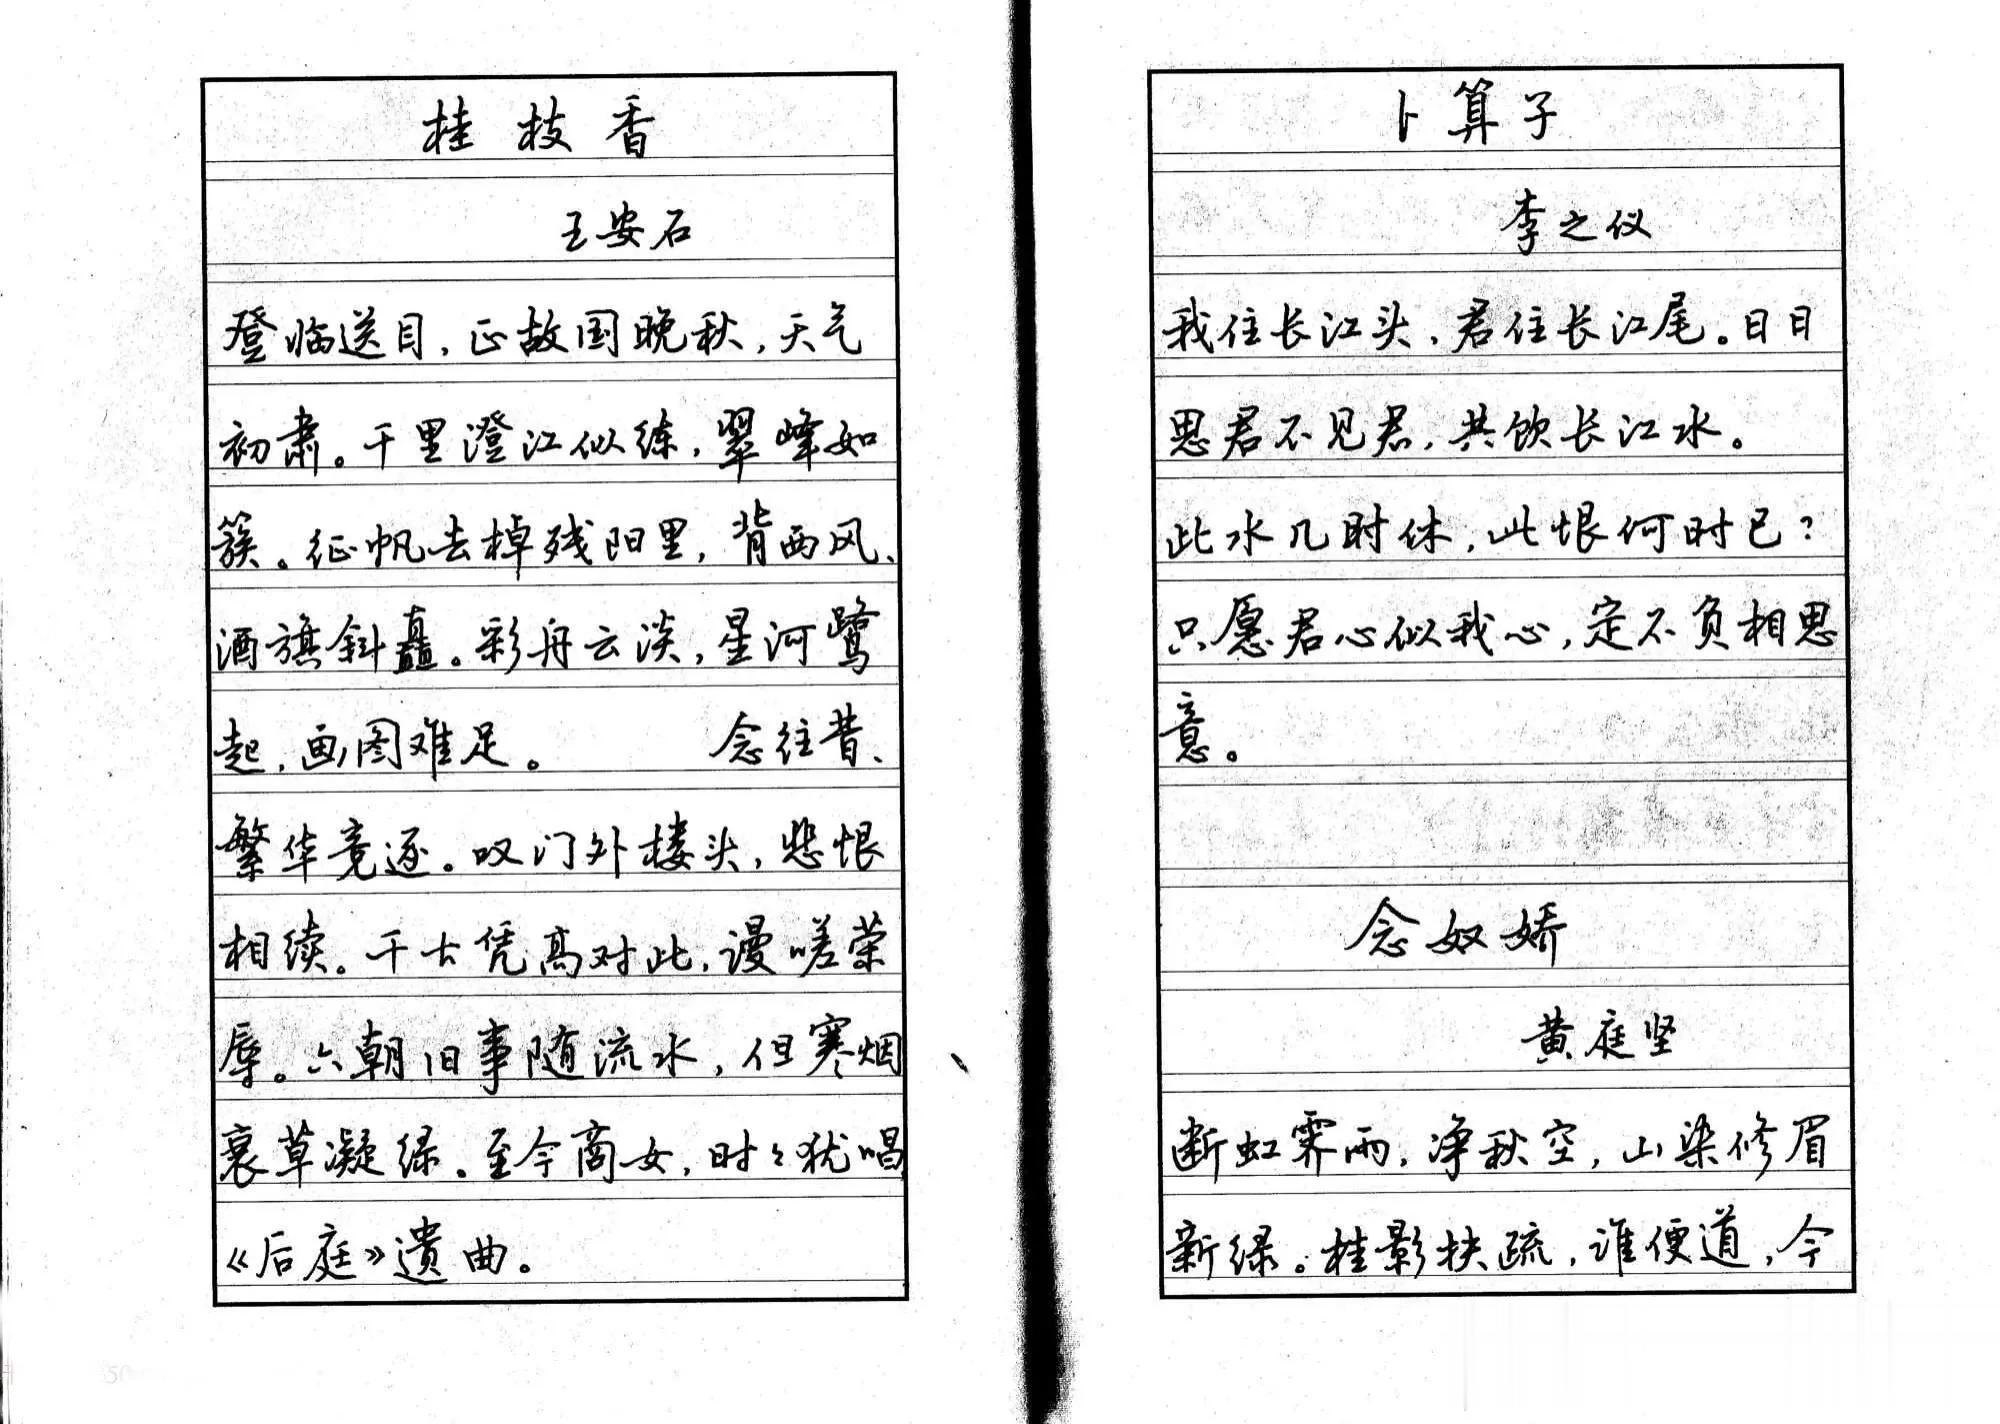 桂枝香
王安石
登临送目，正故国晚秋，天气
初肃。千里澄江似练，翠峰如
簇。征帆去棹残阳里，背西风、
酒旗斜矗。彩舟云淡，星河鹭
起，画图难足。 念往昔、
繁华竞逐。叹门外楼头，悲恨
相续。千古凭高对此，谩嗟荣
辱。六朝旧事随流水，但寒烟
衰草凝绿。至今商女，时々犹唱
《后庭》遗曲。
卜算子
李之仪
我住长江头，君住长江尾。日日
思君不见君，共饮长江水。
此水几时休，此恨何时已？
只愿君心似我心，定不负相思
意。
念奴娇
黄庭坚
断虹霁雨，净秋空，山染修眉
新绿。桂影扶疏，谁便道，今
50